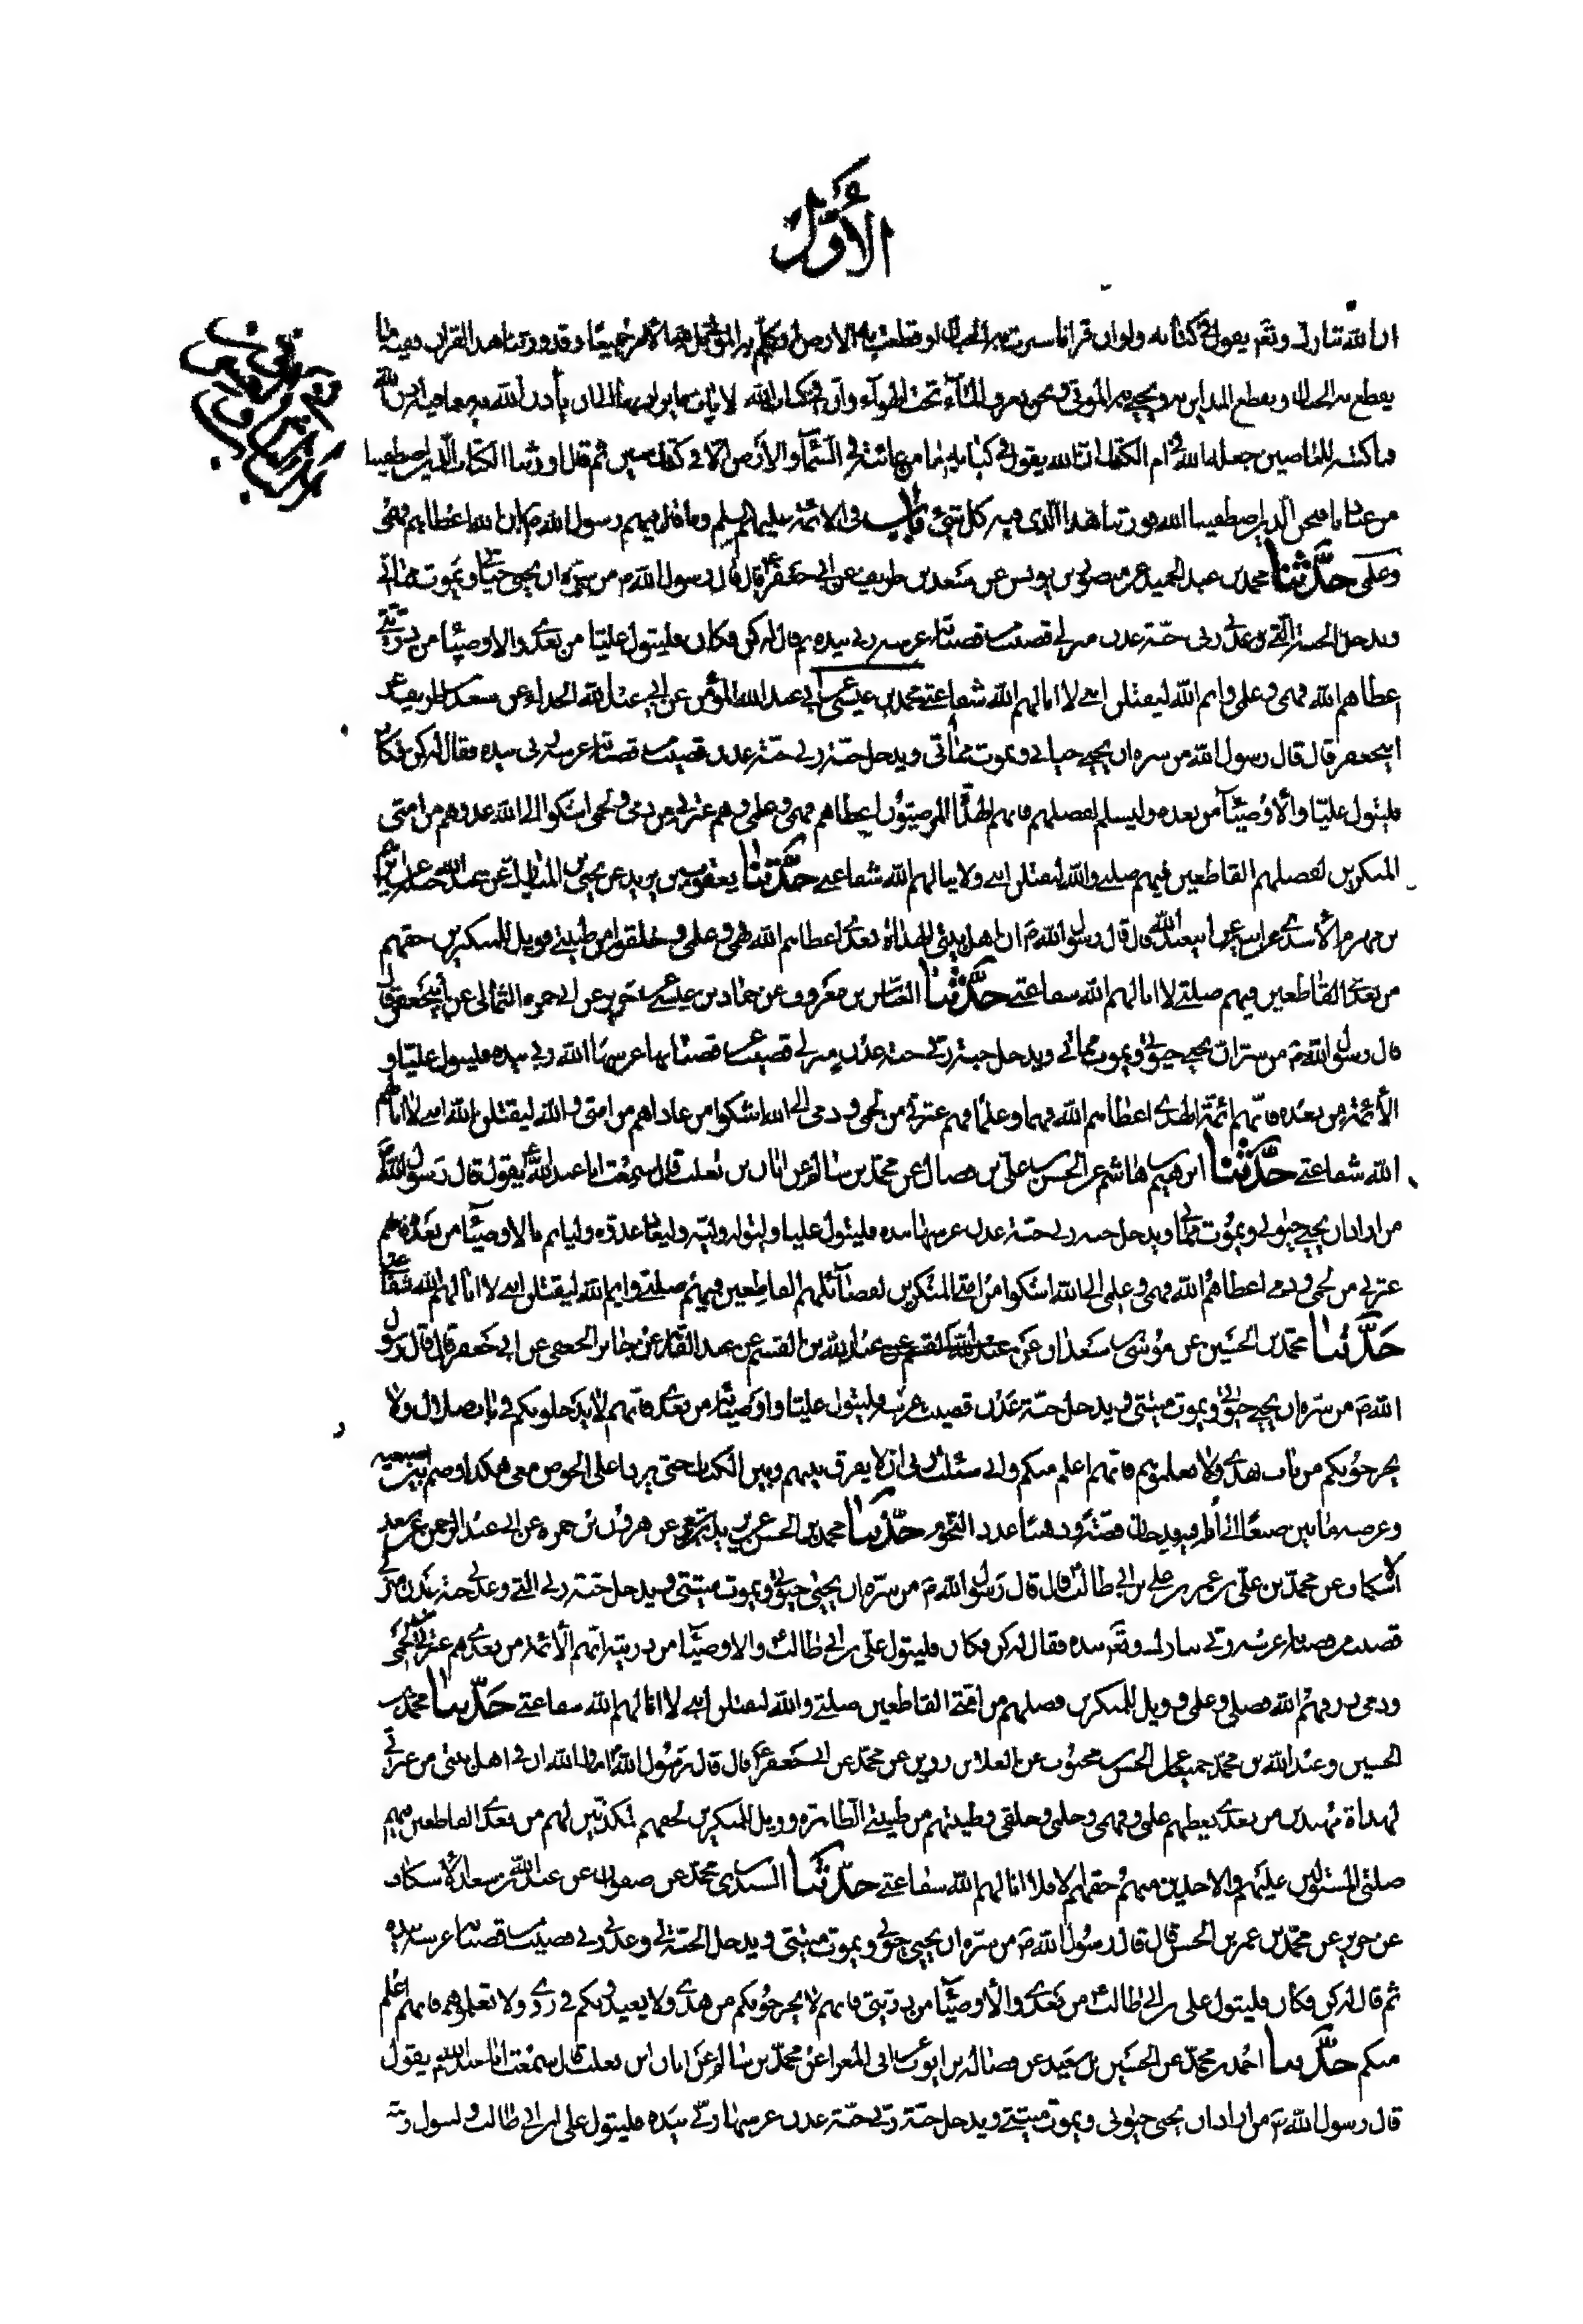 الأوّل
ان الله تبارك وتعم يقول في كتابه ولو ان قرانا سيرت به الجبال او قطعت به الارض او كلم به الموتى بل لله الامر جميعا وقد ورثنا هذا القران ففيه ما
يقطع به الجبال ويقطع المداين به ويحيى به الموتى ونحن نعرف الماء تحت الهواء وان في كتاب الله لايات ما يراد بها الى ان يأذن الله به مع ما فيه اذن الله
فما كتبه للماضين جعله الله في ام الكتاب ان الله يقول في كتابه ما من غائبة في السماء والأرض الا في كتاب مبين ثم قال اورثنا الكتاب الذين اصطفينا
من عبادنا فنحن الذين اصطفينا الله فورثنا هذا الذى فيه كل شئ باب في الائمة عليهم السلم وما قال فيهم رسول الله ص بان الله اعطاهم فهمى
وعلمى حدّثنا محمد بن عبد الحميد عن منصور بن يونس عن سعد بن طريف عن ابى جعفر ع قال قال رسول الله ص من سره ان يحيى حياتى ويموت مماتى
ويدخل الجنة التي وعدنى ربى جنة عدن منزلى قضيب من قضبانه غرسه ربى بيده ثم قال له كن فكان فليتول عليا من بعدى والاوصياء من ذريتى
اعطاهم الله فهمى وعلمى وايم الله ليقتلن ابنى لا انالهم الله شفاعتى محمد بن عيسى عن ابى عبد الله المؤمن عن ابى عبد الله الحذاء عن سعد بن طريف عن
ابيجعفر قال قال رسول الله من سره ان يحيى حياتى ويموت مماتى ويدخل جنة ربى جنة عدن قضيب من قضبانه غرسه ربى بيده فقال له كن فكان
فليتول عليا والأوصياء من بعده وليسلم لفضلهم فانهم الهداة المرضيون اعطاهم فهمى وعلمى وهم عترتى من دمى ولحمى اشكوا الى الله عدوهم من امتى
المنكرين لفضلهم القاطعين فيهم صلتى والله ليقتلن ابنى ولا ينالهم الله شفاعتى حدّثنا يعقوب بن يزيد عن يحيى بن المبارك عن عبد الله بن جبلة عن ابرهيم
بن مهزم الأسدى عن ابيه عن ابيعبد الله قال قال رسول الله ص ان اهل بيتى الهداة بعدى اعطاهم الله فهمى وعلمى وخلقوا من طينتى فويل للمنكرين حقهم
من بعدى القاطعين فيهم صلتى لا انالهم الله شفاعتى حدّثنا العباس بن معروف عن حماد بن عيسى عن حريز عن ابى حمزه الثمالى عن ابيجعفر قال
قال رسول الله ص من سره ان يحيى حيوتى ويموت مماتى ويدخل جنة ربى جنة عدن منزلى قضيب من قضبانها غرسها الله ربى بيده فليتول عليا و
الأئمة من بعده فانهم ائمة الهدى اعطاهم الله فهما وعلما فهم عترتى من لحمى ودمى الى الله اشكوا من عاداهم من امتى والله ليقتلن والله ابنى لا انالهم
الله شفاعتى حدّثنا ابرهيم بن هاشم عن الحسن بن على بن فضال عن محمد بن سالم عن ابان بن تغلب قال سمعت ابا عبد الله ع يقول قال رسول الله ص
من اراد ان يحيى حيوتى ويموت مماتى ويدخل جنة ربى جنة عدن غرسها بيده فليتول عليا وليتول وليه وليعاد عدوه وليأتم بالاوصياء من بعده فانهم
عترتى من لحمى ودمى اعطاهم الله فهمى وعلمى الى الله اشكوا من امتى المنكرين لفضائلهم القاطعين فيهم صلتى وايم الله ليقتلن ابنى لا انالهم الله شفاعتى
حَدّثنا محمد بن الحسين عن موسى بن سعدان عن عبد الله بن القسم عن عبد الله بن القسم عن عبد القهار عن جابر الجعفى عن ابى جعفر قال قال رسول
الله ص من سره ان يحيى حيوتى ويموت ميتتى ويدخل جنة عدن قضيب غرسه فليتول عليا واوصيائه من بعدى فانهم لا يدخلونكم في باب ضلال ولا
يخرجونكم من باب هدى ولا تعلموهم فانهم اعلم منكم وانى سئلت ربى ان لا يفرق بينهم وبين الكتاب حتى يردا على الحوض معى هكذا وضم بين اصبعيه
وعرضه ما بين صنعاء الى ايلة فيه قدحان فضة وذهبا عدد النجوم حدّثنا محمد بن الحسن عن يزيد شعر عن هرون بن حمزه عن ابى عبد الرحمن عن سعد
الاسكاف عن محمد بن على بن عمر بن على بن ابى طالب قال قال رسول الله ص من سره ان يحيى حيوتى ويموت ميتتى ويدخل جنة ربى التي وعدنى جنة عدن منزلى
قضيب من قضبانه غرسه ربى تبارك وتعم بيده فقال له كن فكان فليتول على بن ابى طالب والاوصياء من ذريته انهم الأئمة من بعدى هم عترتى من لحمى
ودمى رزقهم الله فضلى وعلمى وويل للمنكرين فضلهم من امتى القاطعين صلتى والله ليقتلن ابنى لا انالهم الله شفاعتى حدّثنا محمد بن
الحسين وعبد الله بن محمد جميعا عن الحسن بن محبوب عن العلا بن رزين عن محمد عن ابى جعفر ع قال قال رسول الله ص اما والله ان في اهل بيتى من عترتى
لهداة مهتدين من بعدى يعطيهم علمى وفهمى وحلمى وخلقى وطينتهم من طينتى الطاهره فويل للمنكرين لحقهم المكذبين لهم من بعدى القاطعين فيهم
صلتى المستولين عليهم والاخذين منهم حقهم الا فلا انالهم الله شفاعتى حدّثنا السندى بن محمد عن صفوان عن عبد الله بن سعد الأسكاف
عن حريز عن محمد بن عمر بن الحسن قال قال رسول الله ص من سره ان يحيى حيوتى ويموت ميتتى ويدخل الجنة التي وعدنى ربى قضيب من قضبانه غرسه بيده
ثم قال له كن فكان فليتول على بن ابى طالب من بعدى والأوصياء من ذريتى فانهم لا يخرجونكم من هدى ولا يعيدونكم في ردى ولا تعلموهم فانهم اعلم
منكم حدّثنا احمد بن محمد عن الحسين بن سعيد عن فضاله بن ايوب عن ابى المعزا عن محمد بن سالم عن ابان ابن تغلب قال سمعت ابا عبد الله يقول
قال رسول الله ص من اراد ان يحيى حيوتى ويموت ميتتى ويدخل جنة ربى جنة عدن غرسها ربى بيده فليتول على بن ابى طالب وليتول وليه